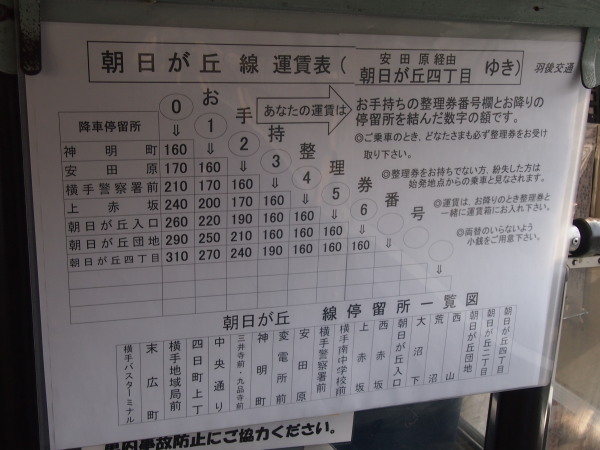 朝日が丘 線 運賃表(安田原経由 朝日が丘四丁目 ゆき)
羽後交通
お手持ち整理券番号
0 1 2 3 4 5 6
あなたの運賃は
お手持ちの整理券番号欄とお降りの
停留所を結んだ数字の額です。
◎ご乗車のとき、どなたさまも必ず整理券をお受け
取り下さい。
◎整理券をお持ちでない方、紛失した方は
始発地点からの乗車と見なされます。
◎運賃は、お降りのとき整理券と
一緒に運賃箱にお入れ下さい。
◎両替のいらないよう
小銭をご用意下さい。
降車停留所 ⇓ ⇓ ⇓ ⇓ ⇓ ⇓ ⇓ ⇓
神明町 160
安田原 170 160
横手警察署前 210 170 160
上赤坂 240 200 170 160
朝日が丘入口 260 220 190 160 160
朝日が丘団地 290 250 210 160 160 160
朝日が丘四丁目 310 270 240 190 160 160 160
朝日が丘 線停留所一覧図
横手バスターミナル
末広町
横手地域局前
四日町上丁
中央通り
三井寺前・九品寺前
神明町
変電所前
安田原
横手警察署前
横手南中学校前
上赤坂
西赤坂
朝日が丘入口
大沼下
荒沼
西山
朝日が丘団地
朝日が丘二丁目
朝日が丘四丁目
車内事故防止にご協力ください。